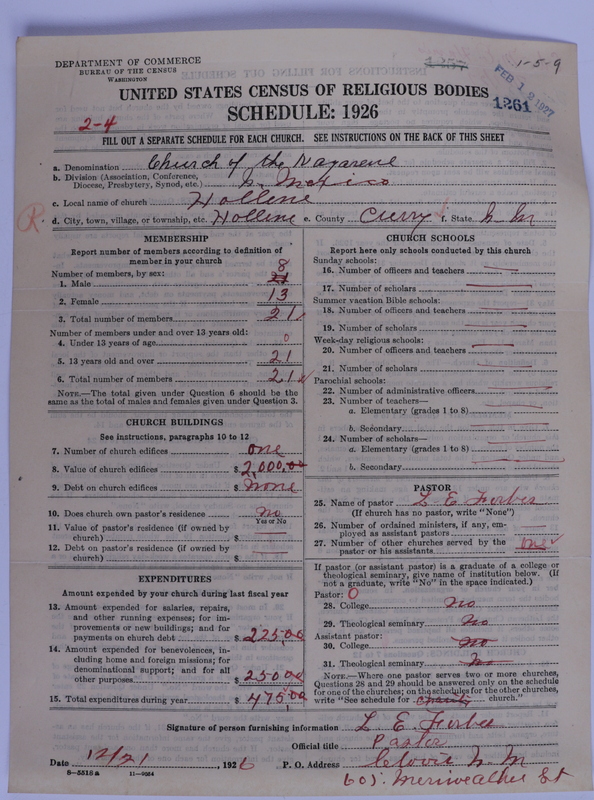 DEPARTMENT OF COMMERCE
BUREAU OF THE CENSUS
WASHINGTON
1257
1-5-9
FEB 12 1927
1261
UNITED STATES CENSUS OF RELIGIOUS BODIES
SCHEDULE: 1926
2-4
FILL OUT A SEPARATE SCHEDULE FOR EACH CHURCH. SEE INSTRUCTIONS ON THE BACK OF THIS SHEET
a. Denomination Church of the Nazarene
b. Division (Association, Conference, Diocese, Presbytery, Synod, etc.) N. Mexico
c. Local name of church Hollene
R d. City, town, village, or township, etc. Hollene e. County Curry f. State N. M
MEMBERSHIP
Report number of members according to definition of
member in your church
Number of members, by sex:
1. Male 8
2. Female 13
3. Total number of members 21
Number of members under and over 13 years old:
4. Under 13 years of age 0
5. 13 years old and over 21
6. Total number of members 21
NOTE.—The total given under Question 6 should be
same as the total of males and females given under Question 3.
CHURCH BUILDINGS
See instructions, paragraphs 10 to 12
7. Number of church edifices one
8. Value of church edifices $ 2,000.00
9. Debt on church edifices $ none
10. Does church own pastor's residence No
Yes or No
11. Value of pastor's residence (if owned by
church) $
12. Debt on pastor's residence (if owned by
church) $
EXPENDITURES
Amount expended by your church during last fiscal year
13. Amount expended for salaries, repairs,
and other running expenses; for im-
provements or new buildings; and for
payments on church debt $ 225.00
14. Amount expended for benevolences, in-
cluding home and foreign missions; for
denominational support; and for all
other purposes $ 250.00
15. Total expenditures during year $ 475.00
CHURCH SCHOOLS
Report here only schools conducted by this church
Sunday schools:
16. Number of officers and teachers
17. Number of scholars
Summer vacation Bible schools:
18. Number of officers and teachers
19. Number of scholars
Week-day religious schools:
20. Number of officers and teachers
21. Number of scholars
Parochial schools:
22. Number of administrative officers
23. Number of teachers—
a. Elementary (grades 1 to 8)
b. Secondary
24. Number of scholars—
a. Elementary (grades 1 to 8)
b. Secondary
PASTOR
25. Name of pastor L E Forbes
(If church has no pastor, write "None")
26. Number of ordained ministers, if any, em-
ployed as assistant pastors
27. Number of other churches served by the
pastor or his assistants one
If pastor (or assistant pastor) is a graduate of a college or
theological seminary, give name of institution below. (If
not a graduate, write "No" in the space indicated.)
Pastor: 0
28. College No
29. Theological seminary No
Assistant pastor:
30. College No
31. Theological seminary No
NOTE.—Where one pastor serves two or more churches,
Questions 28 and 29 should be answered only on the schedule
for one of the churches; on the schedules for the other churches,
write "See schedule for church."
Signature of person furnishing information L E Forbes
Official title Pastor
Date 12/21, 1926 P. O. Address Clovis N. M
8-5518 a 11-9264
605. Meriweather St